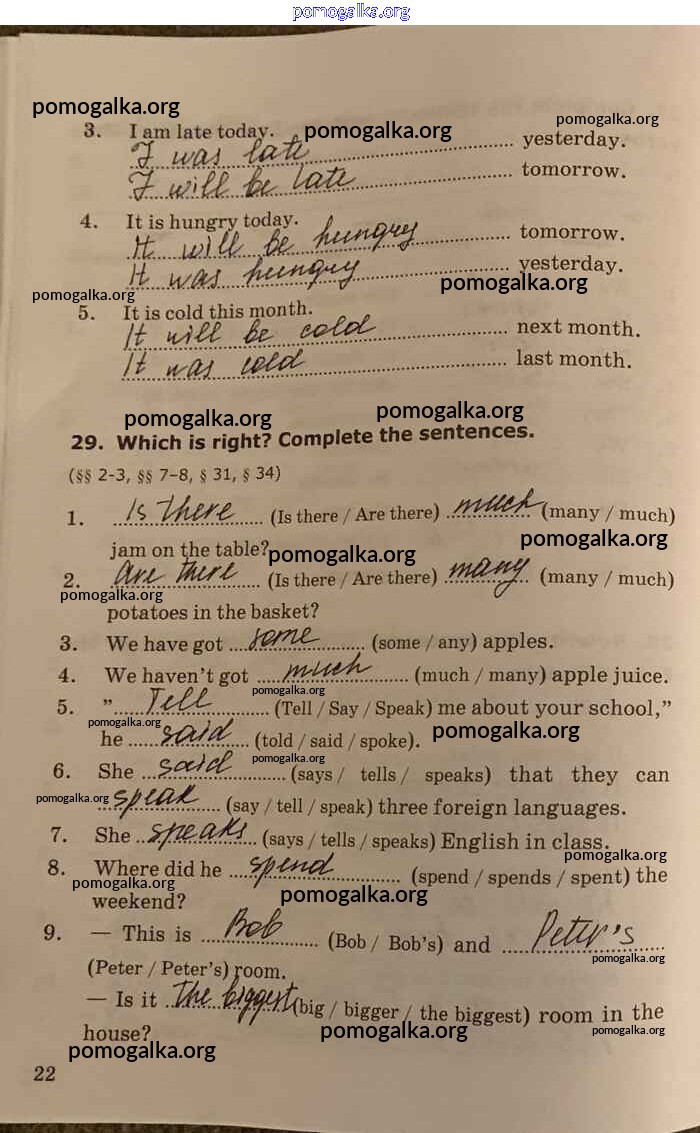 pomogalka.org
pomogalka.org
pomogalka.org
3. I am late today. pomogalka.org
I was late yesterday.
I will be late tomorrow.
4. It is hungry today.
It will be hungry tomorrow.
It was hungry yesterday.
pomogalka.org pomogalka.org
5. It is cold this month.
It will be cold next month.
It was cold last month.
pomogalka.org pomogalka.org
29. Which is right? Complete the sentences.
(§§ 2-3, §§ 7–8, § 31, § 34)
1. Is there (Is there / Are there) much (many / much)
pomogalka.org
jam on the table? pomogalka.org
2. are there (Is there / Are there) many (many / much)
pomogalka.org
potatoes in the basket?
3. We have got some (some / any) apples.
4. We haven't got much (much / many) apple juice.
pomogalka.org
5. "Tell (Tell / Say / Speak) me about your school,"
pomogalka.org pomogalka.org
he said (told / said / spoke).
pomogalka.org
6. She said (says / tells / speaks) that they can
pomogalka.org speak (say / tell / speak) three foreign languages.
7. She speaks (says / tells / speaks) English in class.
pomogalka.org
8. Where did he spend (spend / spends / spent) the
pomogalka.org pomogalka.org
weekend?
9. — This is Bob (Bob / Bob's) and Peter's
pomogalka.org
(Peter / Peter's) room.
— Is it the biggest (big / bigger / the biggest) room in the
pomogalka.org pomogalka.org
house?
pomogalka.org
22